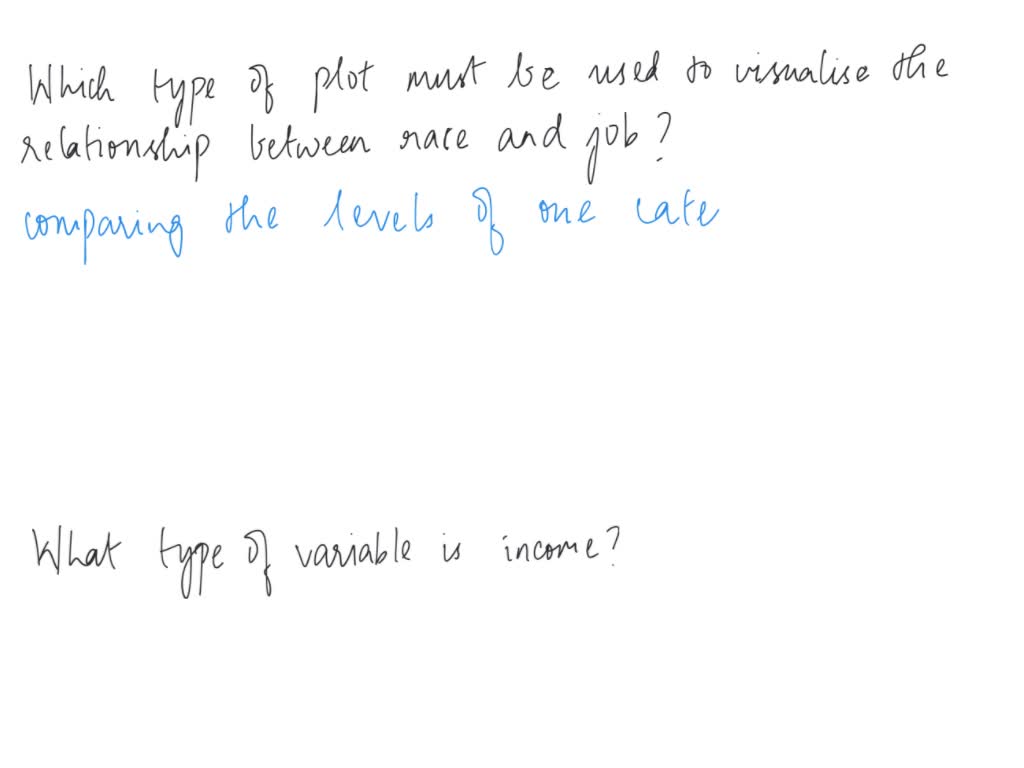 Which type of plot must be used to visualise the
relationship between race and job?
comparing the levels of one cate
What type of variable is income?